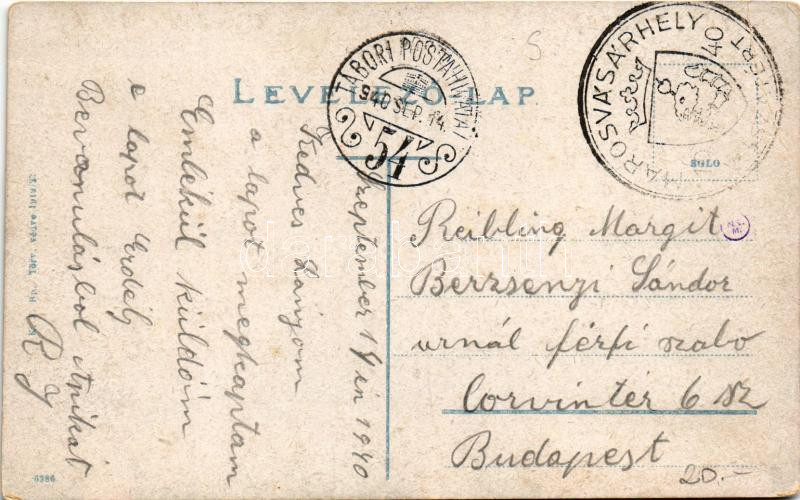 LEVELEZŐ-LAP.
TÁBORI POSTAHIVATAL
940 SEP. 14.
54
MAROSVÁSÁRHELY
Szeptember 14 én 1940
Kedves Lányom
a lapot megkaptam
Emlékül küldöm
e lapot Erdély
Bevonulásbol
R J
Reibling Margit
Berzsenyi Sándor
urnál férfi szabo
Corvin tér 6 sz
Budapest
20.-
6386